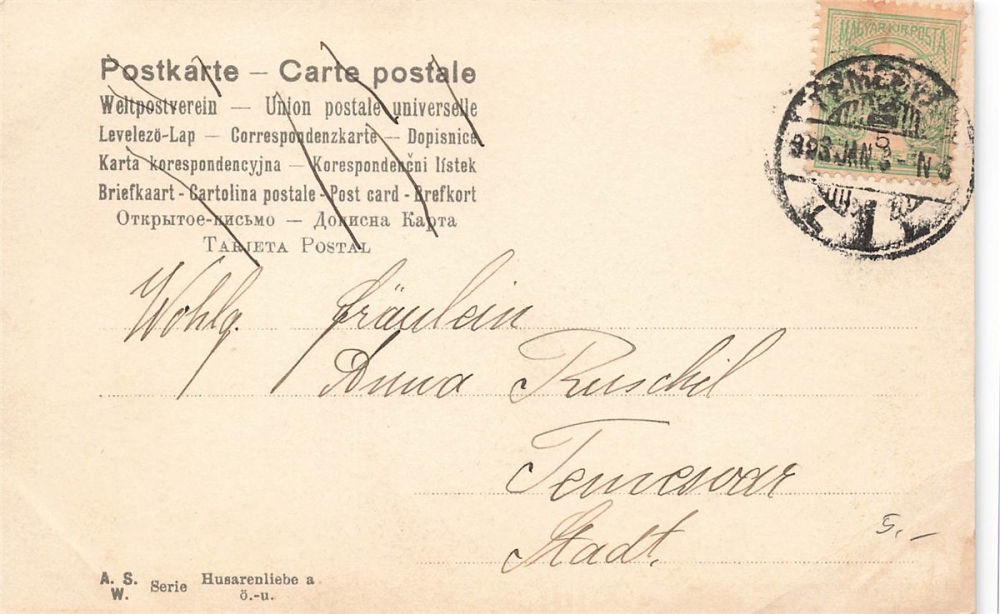 Postkarte – Carte postale
Weltpostverein — Union postale universelle
Levelező-Lap — Correspondenzkarte — Dopisnice
Karta korespondencyjna — Korespondenčni lístek
Briefkaart - Cartolina postale - Post card - Brefkort
Открытое-письмо — Дописна Карта
Tarjeta Postal
MAGYAR KIR. POSTA
JAN.
Wohlg. Fräulein
Anna Ruschil
Temesvar
Stadt.
5.-
A. S. W. Serie Husarenliebe a
ö.-u.